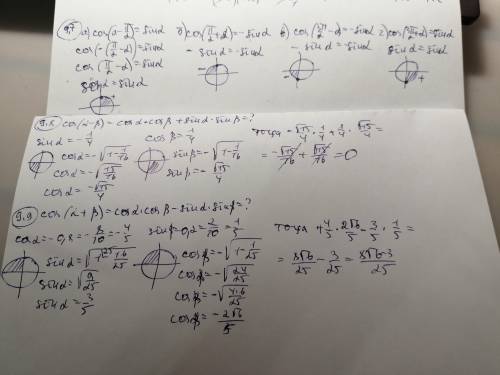 9.7 а) cos(α-π/2)=sinα б) cos(π/2+α)=-sinα в) cos(3π/2-α)=-sinα г) cos(3π/2+α)=sinα
cos(-(π/2-α))=sinα -sinα=-sinα -sinα=-sinα sinα=sinα
cos(π/2-α)=sinα
sinα=sinα
9.8 cos(α-β)=cosα·cosβ+sinα·sinβ=?
sinα=-1/4 cosβ=1/4 тогда -√15/4·1/4+1/4·√15/4=
cosα=-√1-1/16 sinβ=-√1-1/16 =-√15/16+√15/16=0
cosα=-√15/16 sinβ=-√15/4
cosα=-√15/4
9.9 cos(α+β)=cosα·cosβ-sinα·sinβ=?
cosα=-0,8=-8/10=-4/5 sinβ=0,2=2/10=1/5 тогда +4/5·2√6/5-3/5·1/5=
sinα=√1-16/25 cosβ=-√1-1/25 =8√6/25-3/25=8√6-3/25
sinα=√9/25 cosβ=-√24/25
sinα=3/5 cosβ=-√4·6/25
cosβ=-2√6/5